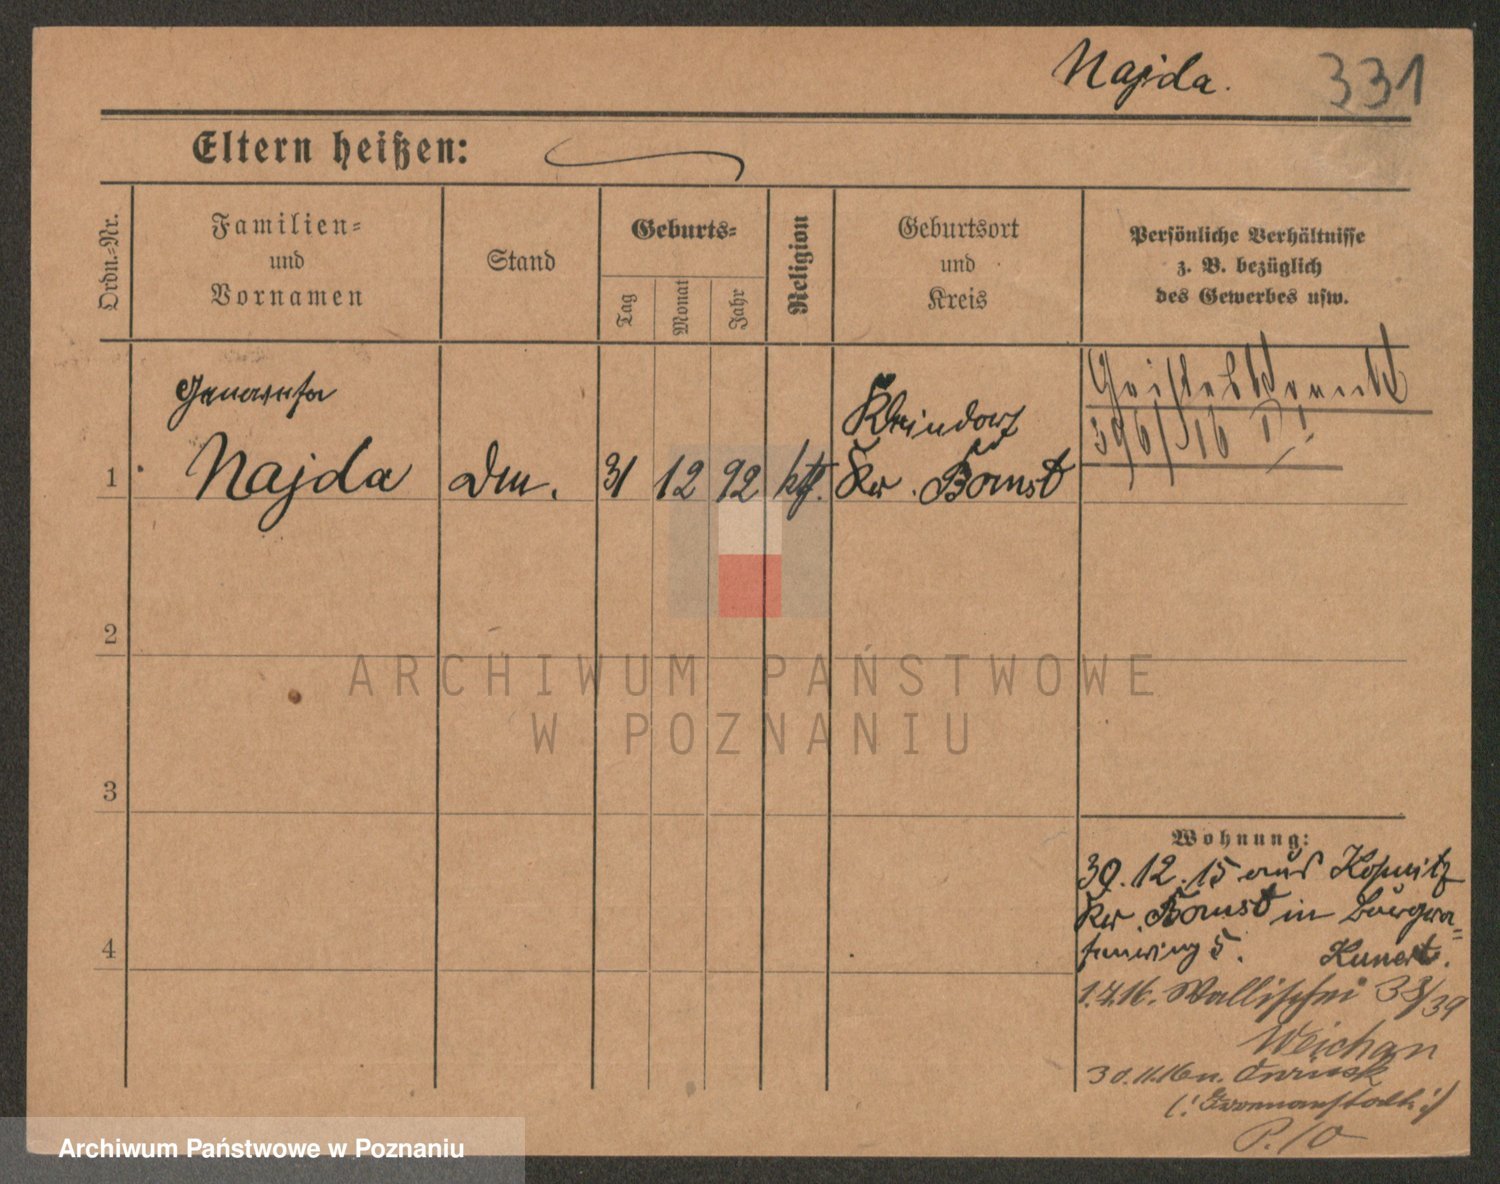 Najda. 331
Eltern heißen:
Ordn.-Nr.
Familien-
und
Vornamen
Stand
Geburts-
Tag
Monat
Jahr
Religion
Geburtsort
und
Kreis
Persönliche Verhältnisse
z. B. bezüglich
des Gewerbes usw.
1
Genowefa
Najda
Dm.
31
12
92
kth.
Kleindorf
Kr. Bomst
2
3
4
Wohnung:
30.12.15 aus Kopnitz
Kr. Bomst in
5. Kunert.
1.7.16. Wallischei 38/39
Weichan
30.11.16 n. Owinsk
(: Irrenanstalt :)
ARCHIWUM PAŃSTWOWE
W POZNANIU
Archiwum Państwowe w Poznaniu